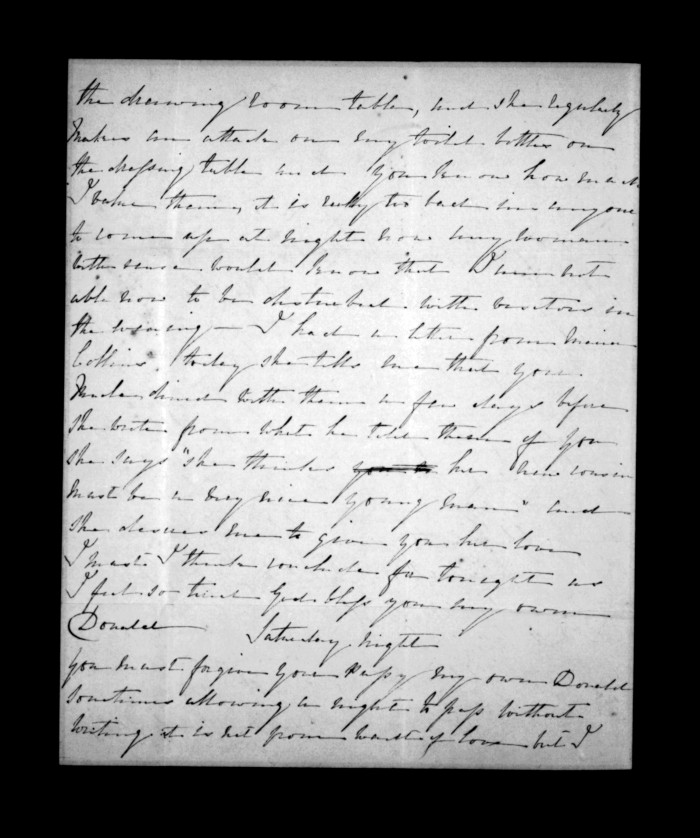 the drawing room table, and she regularly
makes an attack on my toilet bottles on
the dressing table and you know how much
I value them, it is really too bad in anyone
to come up at night now any woman
with sense would know that I am not
able now to be disturbed with visitors in
the evening — I had a letter from Maria
Collins today she tells me that your
Uncle dined with them a few days before
she wrote from what he told them of you
she says "she thinks her new cousin
must be a very nice young man" and
she desires me to give you her love
I must I think conclude for tonight as
I feel so tired God bless you my own
Donald Saturday night
You must forgive your Pussy my own Donald
sometimes allowing a night to pass without
writing it is not from want of love but I